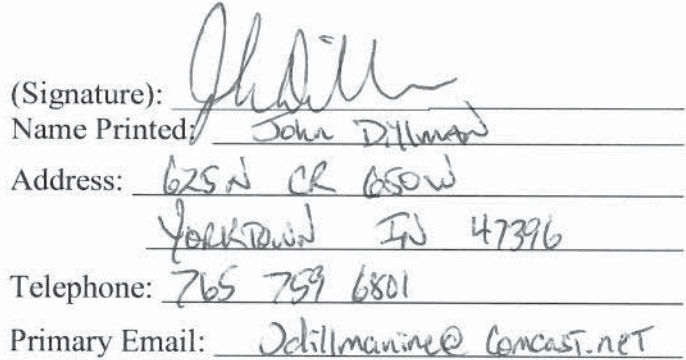 (Signature): John Dillman
Name Printed: John Dillman
Address: 625 N CR 650 W
YORKTOWN IN 47396
Telephone: 765 759 6801
Primary Email: Jdillmaninc@comcast.net